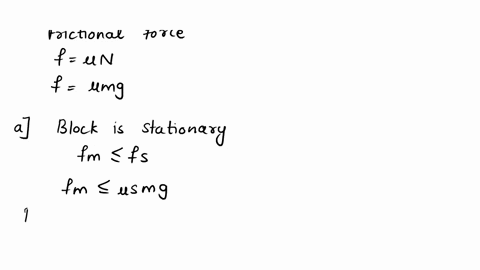 Frictional force
f = μN
f = μmg
a] Block is stationary
fm ≤ fs
fm ≤ μsmg